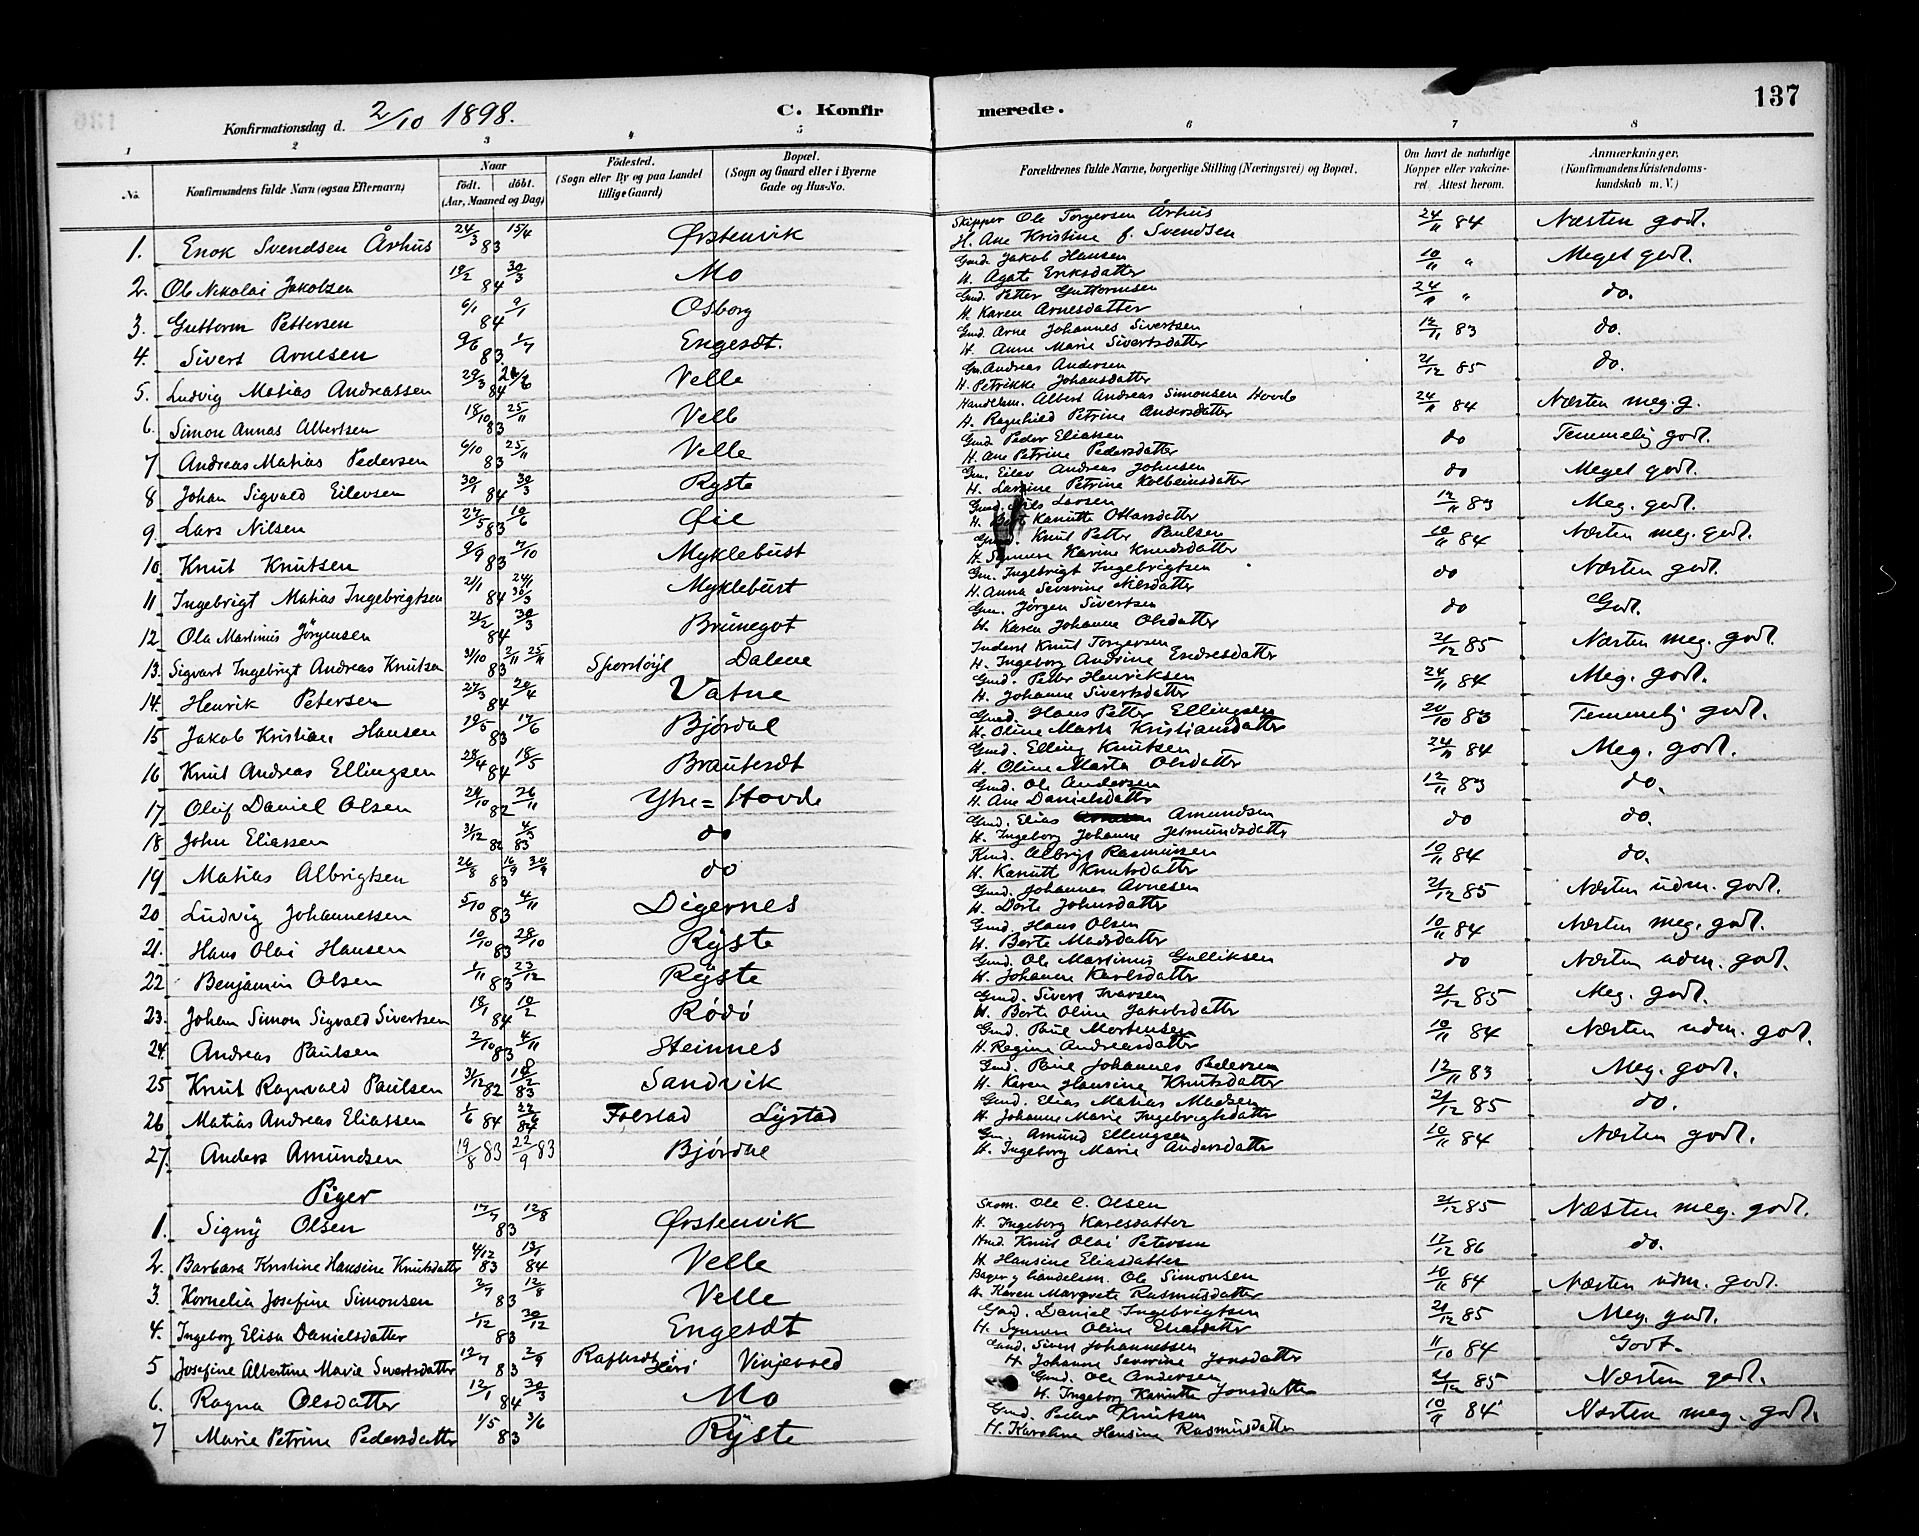 137
Konfirmationsdag d. 2/10 1898.
C. Konfirmerede.
1 2 3 4 5 6 7 8
No.
Konfirmandens fulde Navn (ogsaa Efternavn)
Naar født. døbt. (Aar, Maaned og Dag)
Fødested. (Sogn eller By og paa Landet tillige Gaard)
Bopæl. (Sogn og Gaard eller i Byerne Gade og Hus-No.
Forældrenes fulde Navne, borgerlige Stilling (Næringsvei) og Bopæl.
Om havt de naturlige Kopper eller vakcineret. Attest herom.
Anmærkninger. (Konfirmandens Kristendomskundskab m. V.)
1. Enok Svendsen Århus 24/3 15/4 83 Ørstenvik Skipper Ole Torgersen Århus H. Ane Kristine f. Svendsen 24/11 84 Næsten godt.
2. Ole Nikolai Jakobsen 19/2 30/3 84 Mo Gmd. Jakob Hansen H. Agate Eriksdatter 10/11 " Meget godt.
3. Guttorm Pettersen 6/1 9/1 84 Osborg Gmd. Petter Guttormsen H. Karen Arnesdatter 24/11 " do.
4. Sivert Arnesen 9/6 1/7 83 Engesæt. Gmd. Arne Johannes Sivertsen H. Anne Marie Sivertsdatter 12/11 83 do.
5. Ludvig Matias Andreassen 29/3 84 Velle Gm. Andreas Andersen H. Petrikke Johansdatter 21/12 85 do.
6. Simon Annas Albertsen 18/10 25/11 83 Velle Handelsm. Albert Andreas Simonsen Hovde H. Ragnhild Petrine Andersdatter 24/11 84 Næsten meg. g.
7 Andreas Matias Pedersen 6/10 25/11 83 Velle Gmd. Peder Eliassen H. Ane Petrine Pedersdatter do Temmelig godt.
8 Johan Sigvald Eilevsen 30/1 30/3 84 Ryste Gm. Eilev Andreas Johnsen H. Lavine Petrine Kolbeinsdatter do Meget godt.
9. Lars Nilsen 27/5 10/6 83 Øie Gmd. Nils Larsen H. Kanutte Ottarsdatter 12/11 83 Meg. godt.
10 Knut Knutsen 9/9 7/10 83 Myklebust Gmd. Knut Petter Paulsen H. Synnøve Karine Knudsdatter 10/11 84 Næsten meg. godt.
11 Ingebrigt Matias Ingebrigtsen 21/1 24/1 84 30/3 Myklebust Gm. Ingebrigt Ingebrigtsen H. Anna Severine Nilsdatter do Næsten godt.
12 Ola Martinus Jørgensen 21/2 30/3 84 Brunegot Gm. Jørgen Sivertsen H. Karen Johanne Olsdatter do Godt.
13. Sigvart Ingebrigt Andreas Knutsen 31/10 2/11 25/11 83 Sporstøyl Dalene Inderst Knut Torgersen H. Ingeborg Andrine Endresdatter 21/12 85 Næsten meg. godt.
14. Henrik Petersen 27/3 20/4 84 Vatne Gmd. Petter Henriksen H. Johanne Sivertsdatter 24/11 84 Meg. godt.
15 Jakob Kristian Hansen 19/5 17/6 83 Bjørdal Gmd. Hans Petter Ellingsen H. Oline Marta Kristiansdatter 20/10 83 Temmelig godt.
16 Knut Andreas Ellingsen 28/4 18/5 84 Brautesæt Gmd. Elling Knutsen H. Oline Marta Olsdatter 24/11 84 Meg. godt.
17 Oluf Daniel Olsen 24/10 26/11 82 Ytre=Hovde Gmd. Ole Andersen H. Ane Danielsdatter 12/11 83 do.
18 John Eliassen 31/12 82 4/3 83 do Gmd. Elias Amundsen H. Ingeborg Johanne Jetmundsdatter do do.
19 Matias Albrigtsen 26/8 16/9 30/9 83 do Kmd. Albrigt Rasmussen H. Kanutt Knutsdatter 10/11 84 do.
20 Ludvig Johannessen 5/10 4/11 83 Digernes Gmd. Johannes Arnesen H. Dorte Johnsdatter 21/12 85 Næsten udm. godt.
21. Hans Olai Hansen 10/10 28/10 83 Ryste Gmd. Hans Olsen H. Berte Madsdatter 10/11 84 Næsten meg. godt.
22 Benjamin Olsen 1/11 23/12 83 Ryste Gmd. Ole Martinus Gulliksen H. Johanne Karlsdatter do Næsten udm. godt.
23. Johan Simon Sigvald Sivertsen 18/1 10/2 84 Rødø Gmd. Sivert Ivarsen H. Berte Oline Jakobsdatter 21/12 85 Meg. godt.
24. Andreas Paulsen 2/10 4/11 83 Steinnes Gmd. Paul Mortensen H. Regine Andreasdatter 10/11 84 Næsten udm. godt.
25 Knut Ragnvald Paulsen 31/12 82 18/2 83 Sandvik Gmd. Paul Johannes Pedersen H. Karen Hansine Knutsdatter 12/11 83 Meg. godt.
26 Matias Andreas Eliassen 1/6 84 22/6 84 Folestad Lystad Gmd. Elias Matias Madsen H. Johanne Marie Ingebrigtsdatter 21/12 85 do.
27. Anders Amundsen 19/8 83 22/9 83 Bjørdal Gm. Amund Ellingsen H. Ingeborg Marie Andersdatter 10/11 84 Næsten godt.
Piger
1. Signy Olsen 17/7 12/8 83 Ørstenvik Skom. Ole C. Olsen H. Ingeborg Karlsdatter 21/12 85 Næsten meg. godt.
2. Barbara Kristine Hansine Knutsdatter 4/12 83 13/1 84 Velle Hmd. Knut Olai Petersen H. Hansine Eliasdatter 17/12 86 do.
3. Kornelia Josefine Simonsen 2/7 12/8 83 Velle Bager og handelsm. Ole Simonsen H. Karen Margrete Rasmusdatter 10/11 84 Næsten udm. godt.
4. Ingeborg Elisa Danielsdatter 1/12 30/12 83 Engesæt Gmd. Daniel Ingebrigtsen H. Synnøve Oline Eliasdatter 21/12 85 Meg. godt.
5 Josefine Albertine Marie Sivertsdatter 12/7 2/9 83 Herø Vinjevold Gmd. Sivert Johannessen H. Johanne Severine Jonsdatter 11/10 84 Godt.
6. Ragna Olsdatter 12/1 30/3 84 Mo Gmd. Ole Andersen H. Ingeborg Kanutte Jonsdatter 21/12 85 Næsten godt.
7 Marie Petrine Pedersdatter 1/5 3/6 83 Ryste Gmd. Peder Knutsen H. Karoline Hansine Rasmusdatter 10/11 84 Næsten meg. godt.